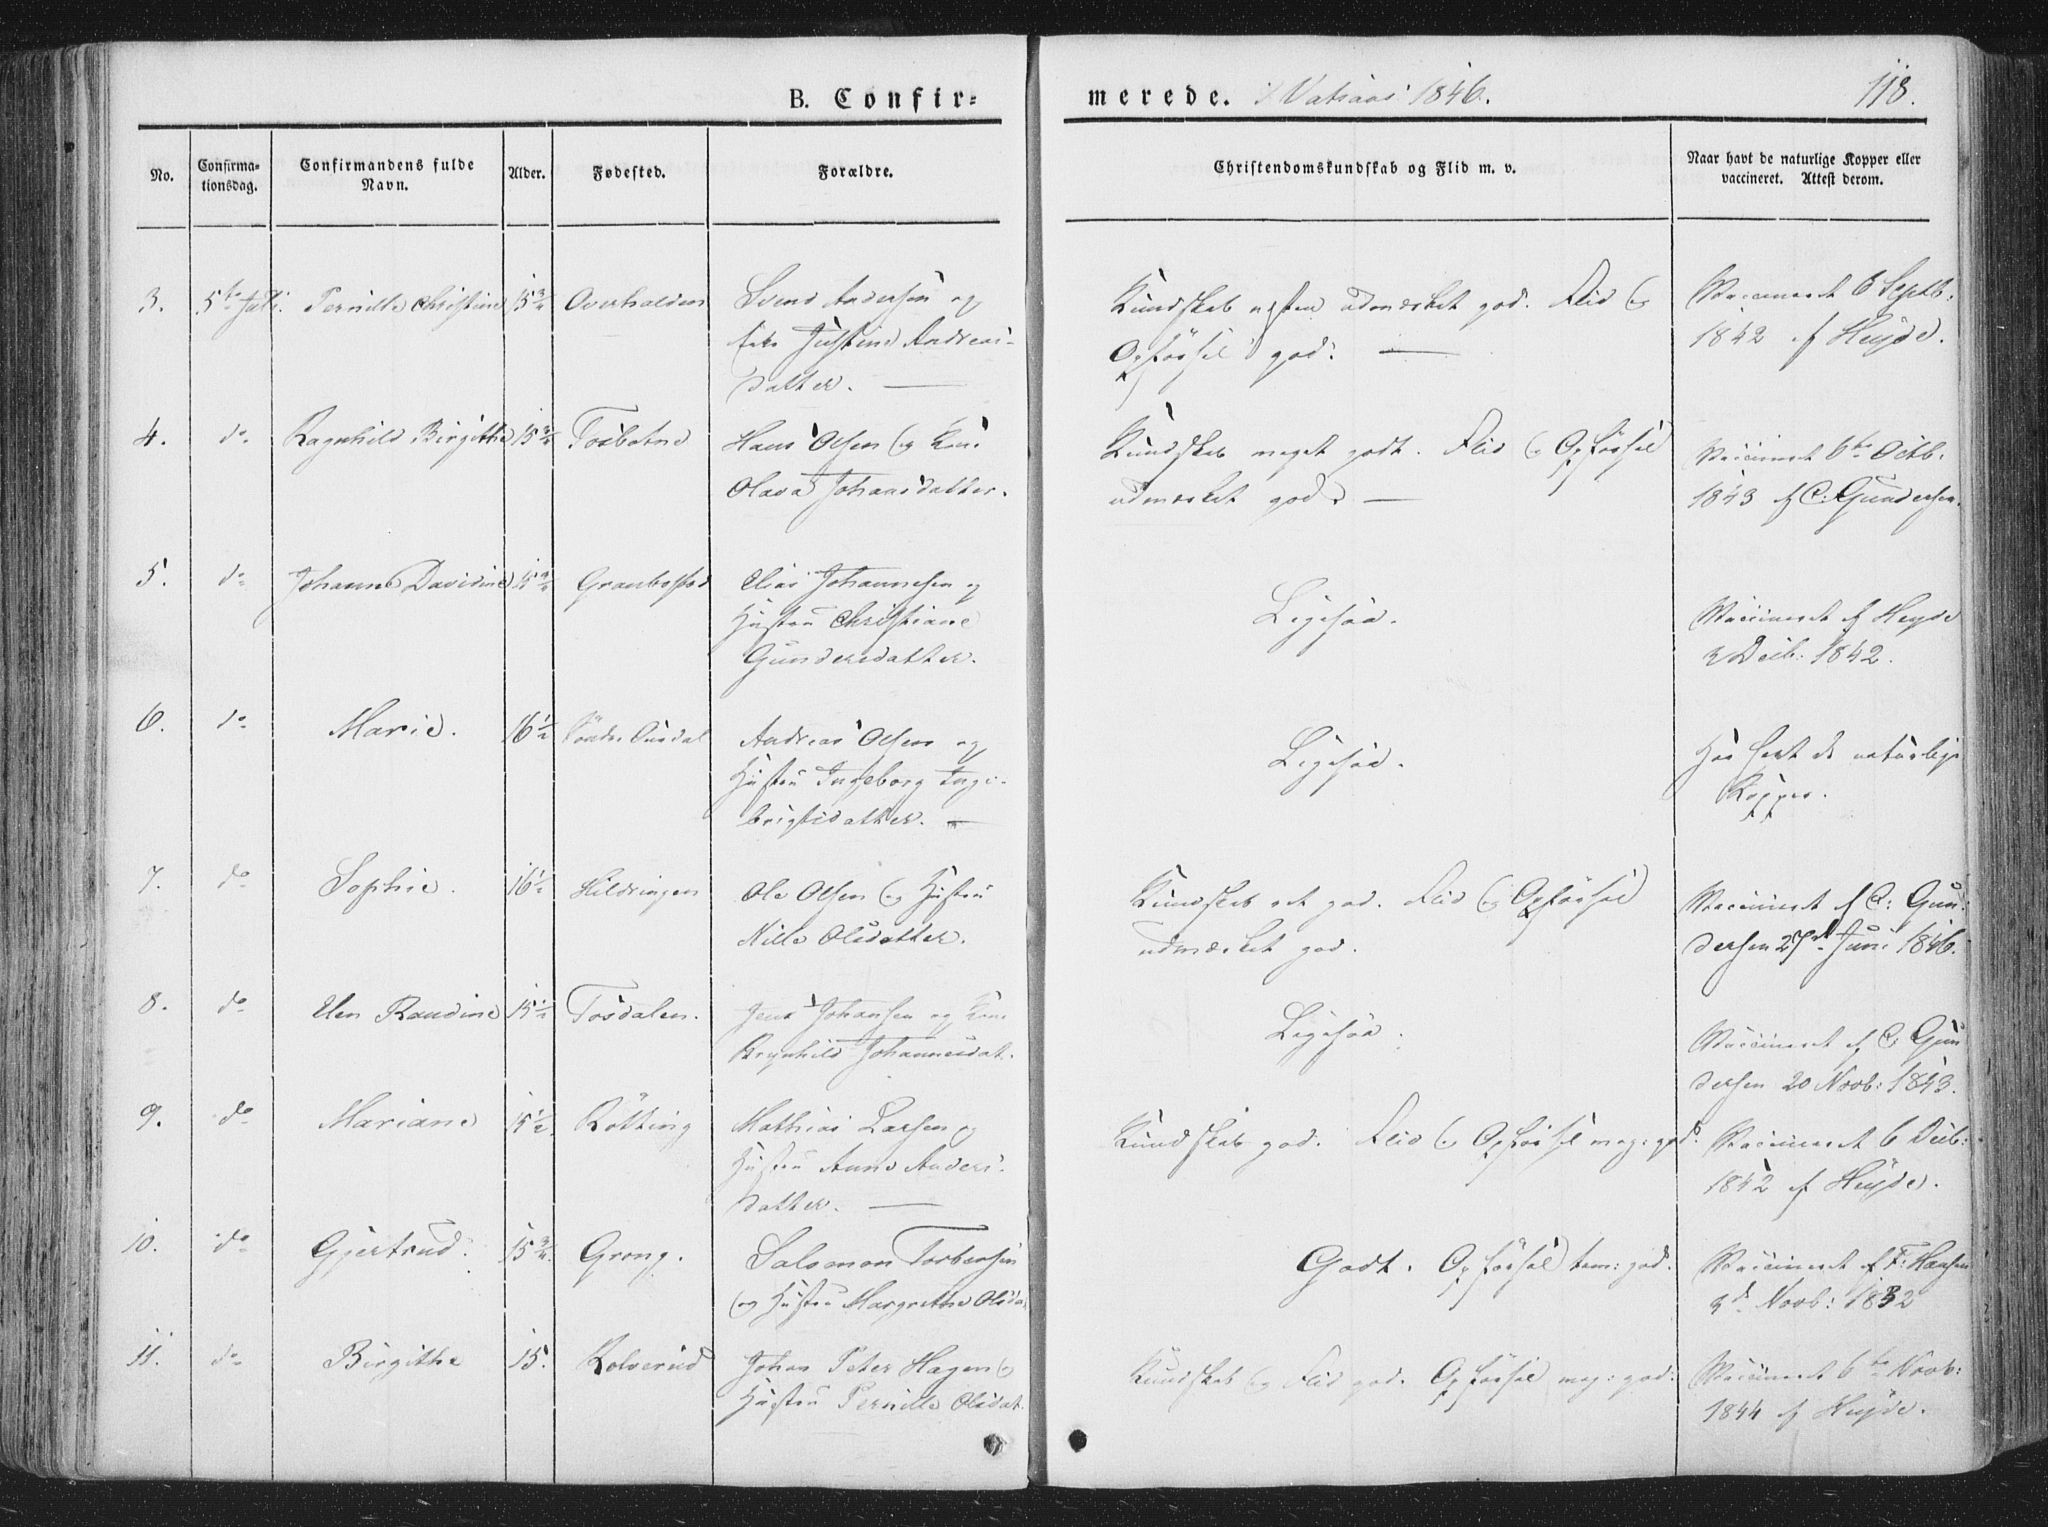 B. Confir-
merede. i Vatsaas 1846.
118.
No.
Confirma-
tionsdag.
Confirmandens fulde
Navn.
Alder.
Fødested.
Forældre.
Christendomskundskab og Flid m. v.
Naar havt de naturlige Kopper eller
vaccineret. Attest derom.
3. 5te Juli. Pernille Christine 15 3/4 Overhalden
Svend Andersen og
Justine Andreas-
datter. —
Kundskab næsten udmærket god. Flid og
Opførsel god. —
Vaccineret 6 Septb:
1842 af Heyde.
4. do Ragnhild Birgithe 15 3/4 Tosbotne
Hans Olsen og Kone
Olava Johansdatter.
Kundskab meget godt. Flid og Opførsel
udmærket god. —
Vaccineret 6te Octb:
1843 af C: Gundersen.
5. do Johanne Davidine 15 3/4
Elias Johannesen og
Hustru Christiane
Gundersdatter.
Ligesaa.
Vaccineret af Heyde
Decb: 1842.
6. do Marie. 16 1/2
Andreas Olsen og
Hustru Ingeborg Inge-
brigtsdatter. —
Ligesaa.
Har havt de naturlige
Kopper.
7. do Sophie. 16 1/2 Hildringen
Ole Olsen og Hustru
Nille Olsdatter.
Kundskab ret god. Flid og Opførsel
udmærket god.
Vaccineret af C: Gun-
dersen 27de Juni 1846.
8. do Elen Randine 15 1/2 Tosdalen.
Jens Johansen og Kone
Johannesdat.
Ligesaa.
Vaccineret af C: Gun
dersen 20 Novb: 1843.
9. do Mariane 15 1/2 Røtting
Mathias Larsen og
Hustru Anne Anders-
datter. —
Kundskab god. Flid og Opførsel meg: god.
Vaccineret 6 Decb:
1842 af Heyde.
10. do Gjertrud. 15 3/4 Grong.
Salomon Torbersen
og Hustru Margrethe Olsda
Godt. Opførsel tem: god.
Vaccineret af F: Hansen
3d Novb: 1832
11. do Birgithe 15. Kolverud
Johan Peter Hagen og
Hustru Pernille Olsdat.
Kundskab og Flid god. Opførsel meg: god:
Vaccineret 6te Novb:
1844 af Heyde.